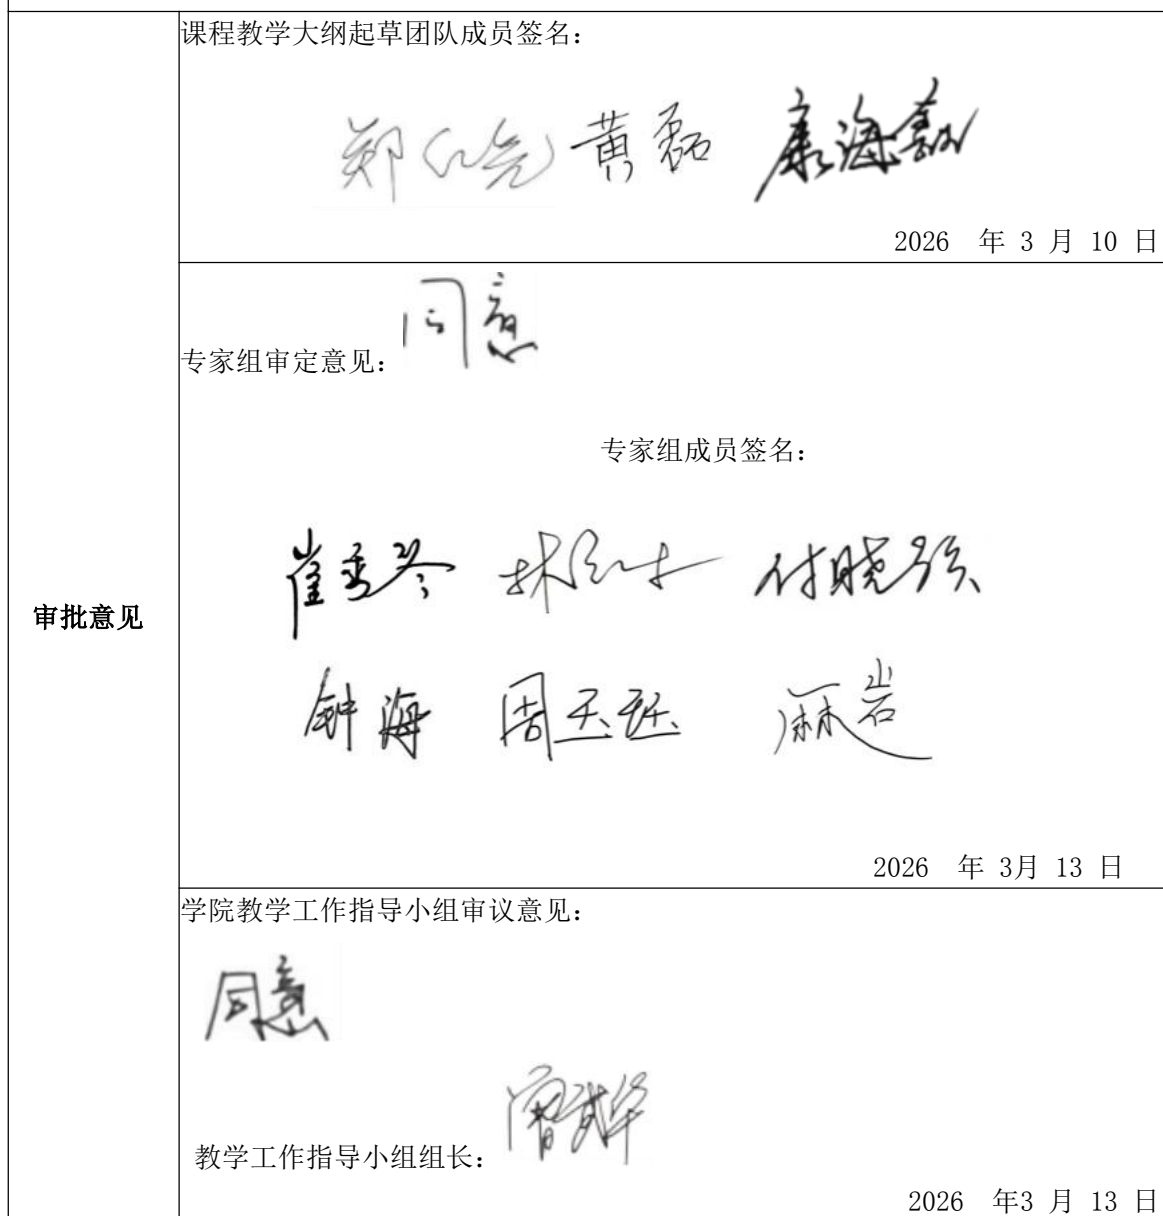 课程教学大纲起草团队成员签名：
黄磊 康海嘉
2026 年 3 月 10 日
同意
专家组审定意见：
专家组成员签名：
崔秀芬 付晓强
钟海 周玉珏 麻岩
审批意见
2026 年 3月 13 日
学院教学工作指导小组审议意见：
同意
教学工作指导小组组长：
2026 年3 月 13 日